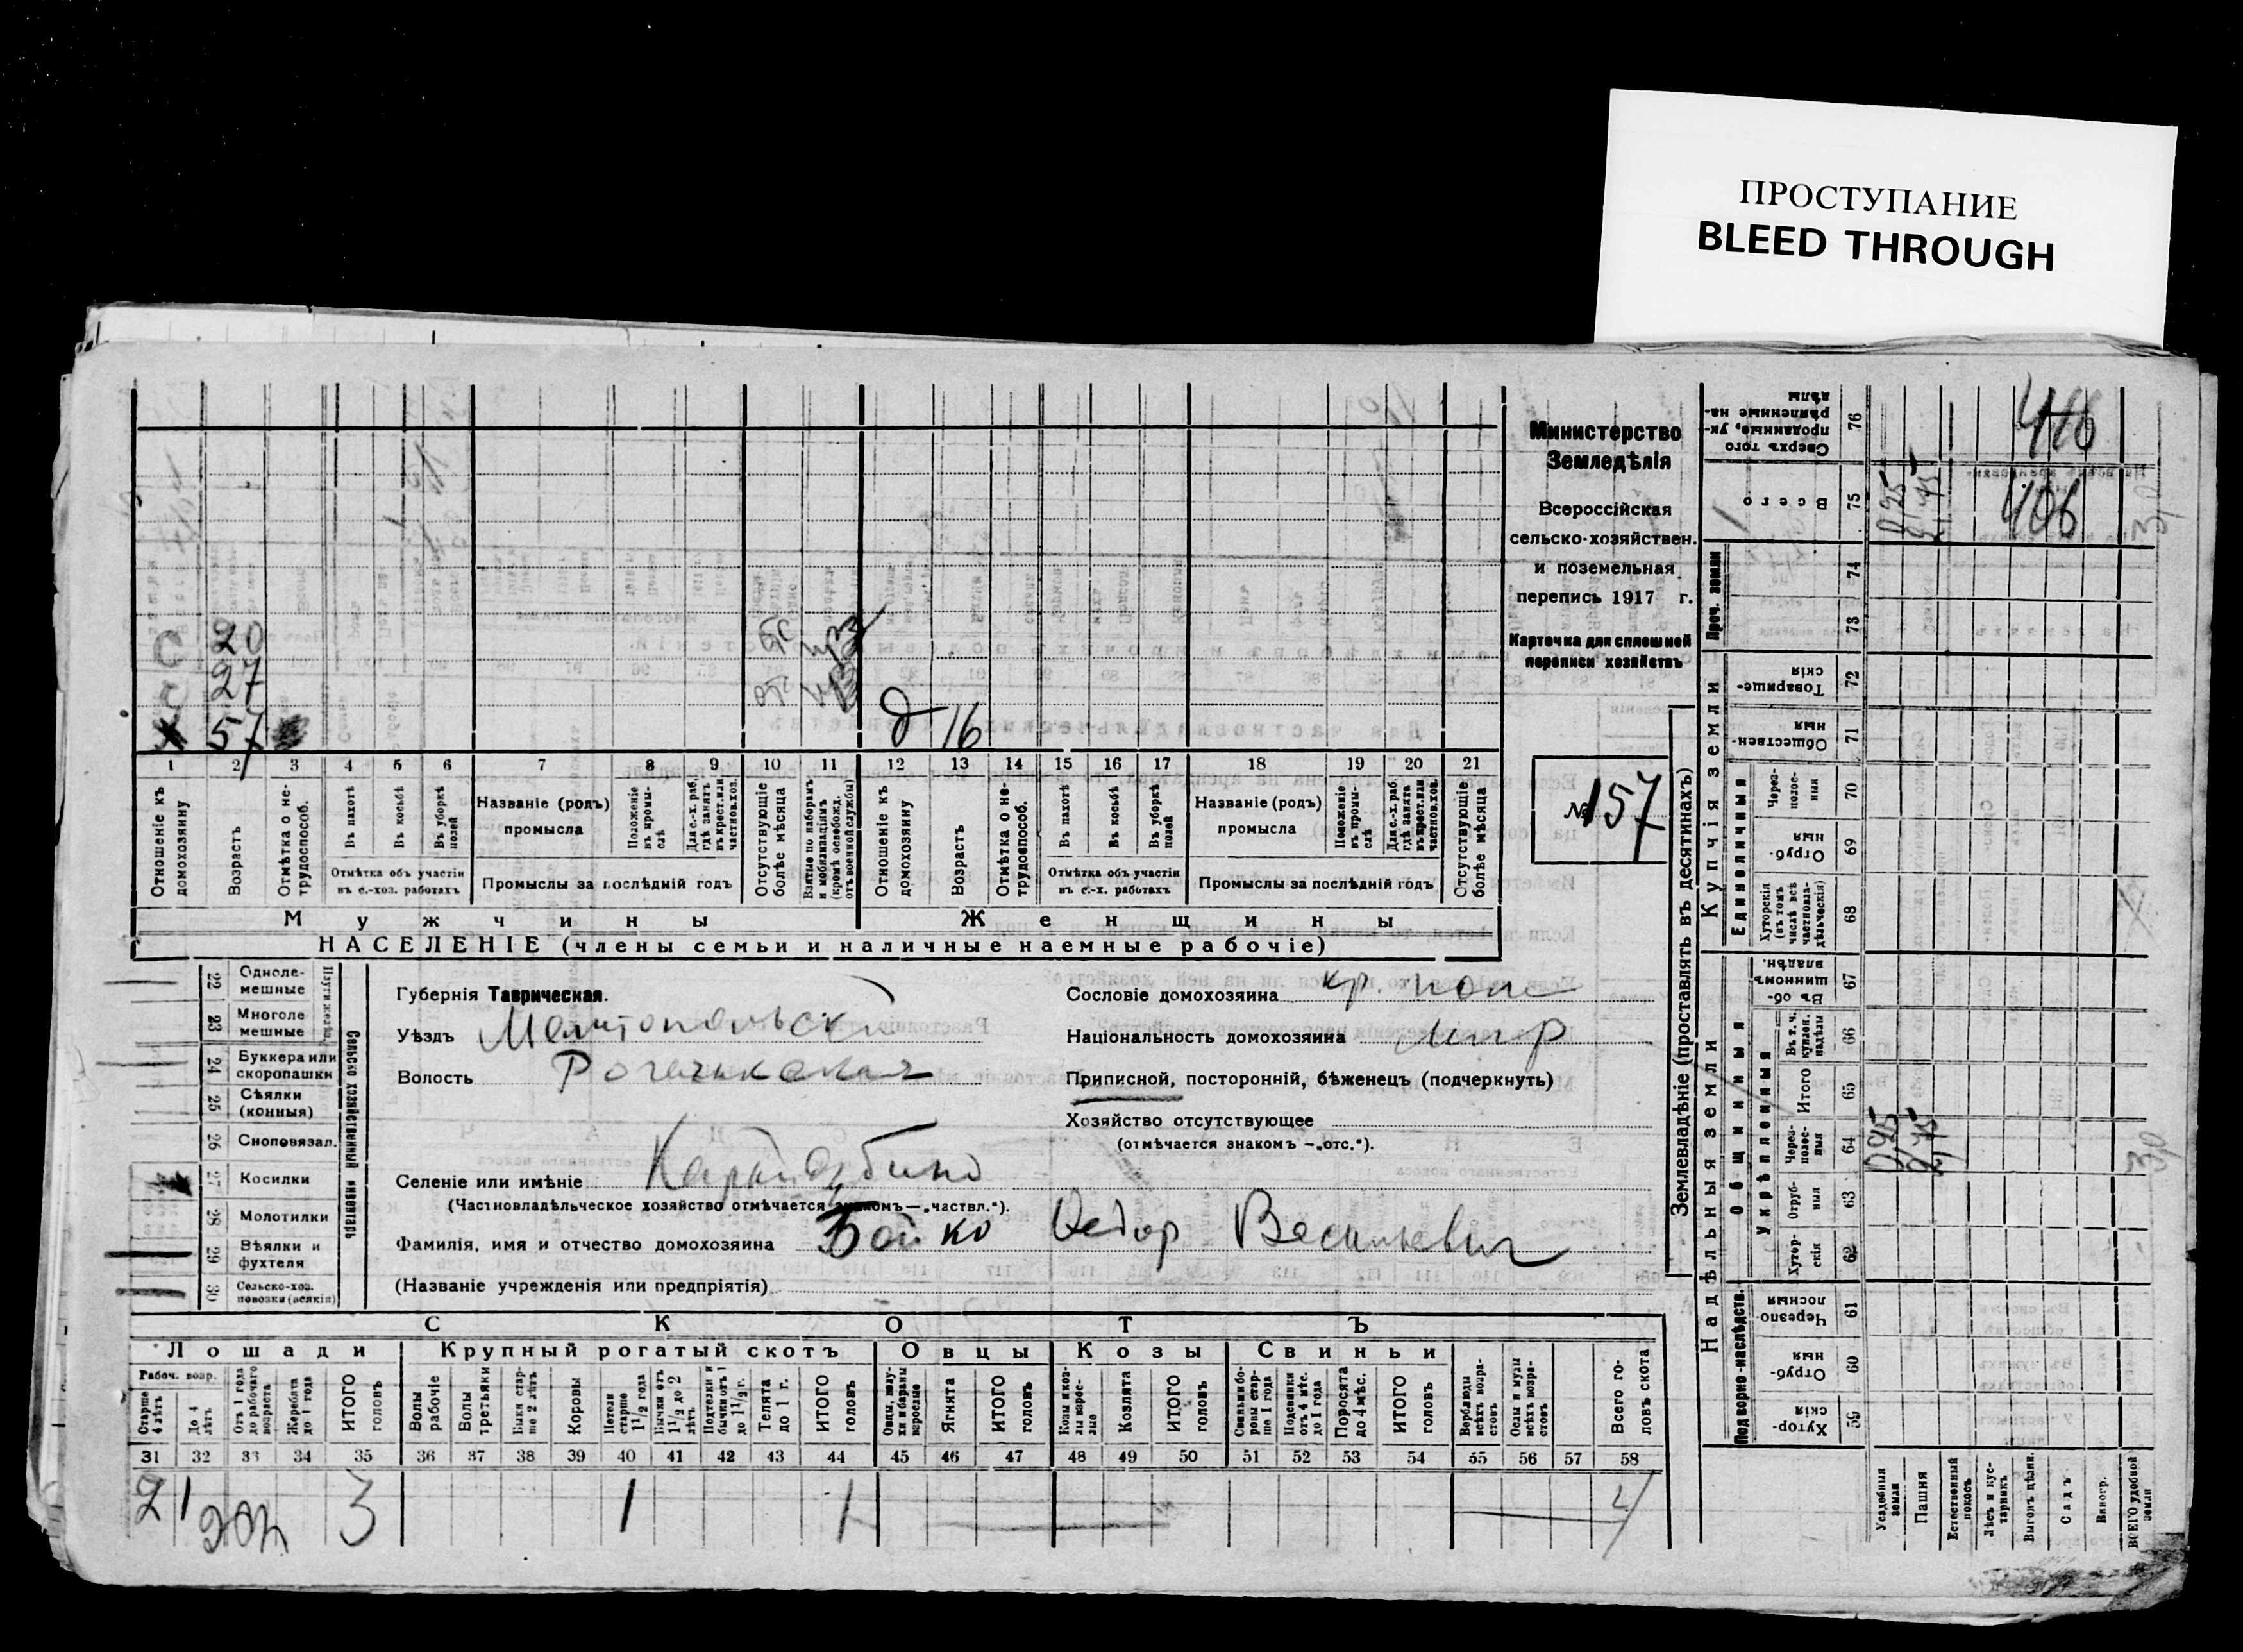 ПРОСТУПАНИЕ
BLEED THROUGH
Министерство
Земледѣлія
Всероссійская
сельско-хозяйствен.
и поземельная
перепись 1917 г.
Карточка для сплошной
переписи хозяйствъ
№ 157
20
27
57
д 16
1 2 3 4 5 6 7 8 9 10 11 12 13 14 15 16 17 18 19 20 21
Отношеніе къ домохозяину
Возрастъ
Отмѣтка о не-трудоспособ.
Въ пахотѣ
Въ косьбѣ
Въ уборкѣ полей
Отмѣтка объ участіи въ с.-хоз. работахъ
Названіе (родъ) промысла
Положеніе въ промы-слѣ
Для с.-х. раб. гдѣ занятъ въ крест. или частнов. хоз.
Промыслы за послѣдній годъ
Отсутствующіе болѣе мѣсяца
Взятые по наборамъ и мобилизаціямъ (кромѣ освобожд. отъ военной службы)
Отношеніе къ домохозяину
Возрастъ
Отмѣтка о не-трудоспособ.
Въ пахотѣ
Въ косьбѣ
Въ уборкѣ полей
Отмѣтка объ участіи въ с.-х. работахъ
Названіе (родъ) промысла
Положеніе въ промы-слѣ
Для с.-х. раб. гдѣ занята въ крест. или частнов. хоз.
Промыслы за послѣдній годъ
Отсутствующіе болѣе мѣсяца
Мужчины Женщины
НАСЕЛЕНІЕ (члены семьи и наличные наемные рабочіе)
22 Одноле-мешные
23 Многоле мешные
24 Буккера или скоропашки
25 Сѣялки (конныя)
26 Сноповязал.
27 Косилки
28 Молотилки
29 Вѣялки и фухтеля
30 Сельско-хоз. повозки (всякія)
Сельско хозяйственный инвентарь
Губернія Таврическая.
Уѣздъ
Волость
Селеніе или имѣніе
(Частновладѣльческое хозяйство отмѣчается знакомъ—„частвл.").
Фамилія, имя и отчество домохозяина Бойко Федор Васильевич
(Названіе учрежденія или предпріятія)
Сословіе домохозяина кр.
Національность домохозяина
Приписной, посторонній, бѣженецъ (подчеркнуть)
Хозяйство отсутствующее
(отмѣчается знакомъ —„отс.").
СКОТЪ
Лошади Крупный рогатый скотъ Овцы Козы Свиньи
Рабоч. возр.
Старше 4 лѣтъ
До 4 лѣтъ
Отъ 1 года до рабочаго возраста
Жеребята до 1 года
ИТОГО головъ
Волы рабочіе
Волы третьяки
Быки стар-ше 2 лѣтъ
Коровы
Нетели старше 1½ года
Бычки отъ 1½ до 2 лѣтъ
Подтелки и бычки отъ 1 до 1½ г.
Телята до 1 г.
ИТОГО головъ
Овцы, валу-хи и бараны взрослые
Ягнята
ИТОГО головъ
Козы и коз-лы взрос-лые
Козлята
ИТОГО головъ
Свиньи и бо-ровы стар-ше 1 года
Подсвинки отъ 4 мѣс. до 1 года
Поросята до 4 мѣс.
ИТОГО головъ
Верблюды всѣхъ возра-стовъ
Ослы и мулы всѣхъ возра-стовъ
Всего го-ловъ скота
31 32 33 34 35 36 37 38 39 40 41 42 43 44 45 46 47 48 49 50 51 52 53 54 55 56 57 58
2 1 3 1 1 4
Землевладѣніе (проставлять въ десятинахъ)
Надѣльныя земли Купчія земли Проч. земли
Подворно-наслѣдств. Общинныя Единоличныя
Укрѣпленныя
Сверхъ того проданные, ук-рѣпленные на-дѣлы 76
Всего 75
74
73
Товарище-скія 72
Обществен-ныя 71
Через-полос-ныя 70
Отруб-ныя 69
Хуторскія (въ томъ числѣ всѣ частновла-дѣльческія) 68
Въ об-щинномъ владѣн. 67
Въ т. ч. куплен. надѣлы 66
Итого 65
Через-полос-ныя 64
Отруб-ныя 63
Хутор-скія 62
Черезпо-лосныя 61
Отруб-ныя 60
Хутор-скія 59
Усадебныя земли
Пашня
Естественный покосъ
Лѣсъ и кус-тарникъ
Выгонъ цѣлин.
Садъ
Виногр.
ВСЕГО удобной земли